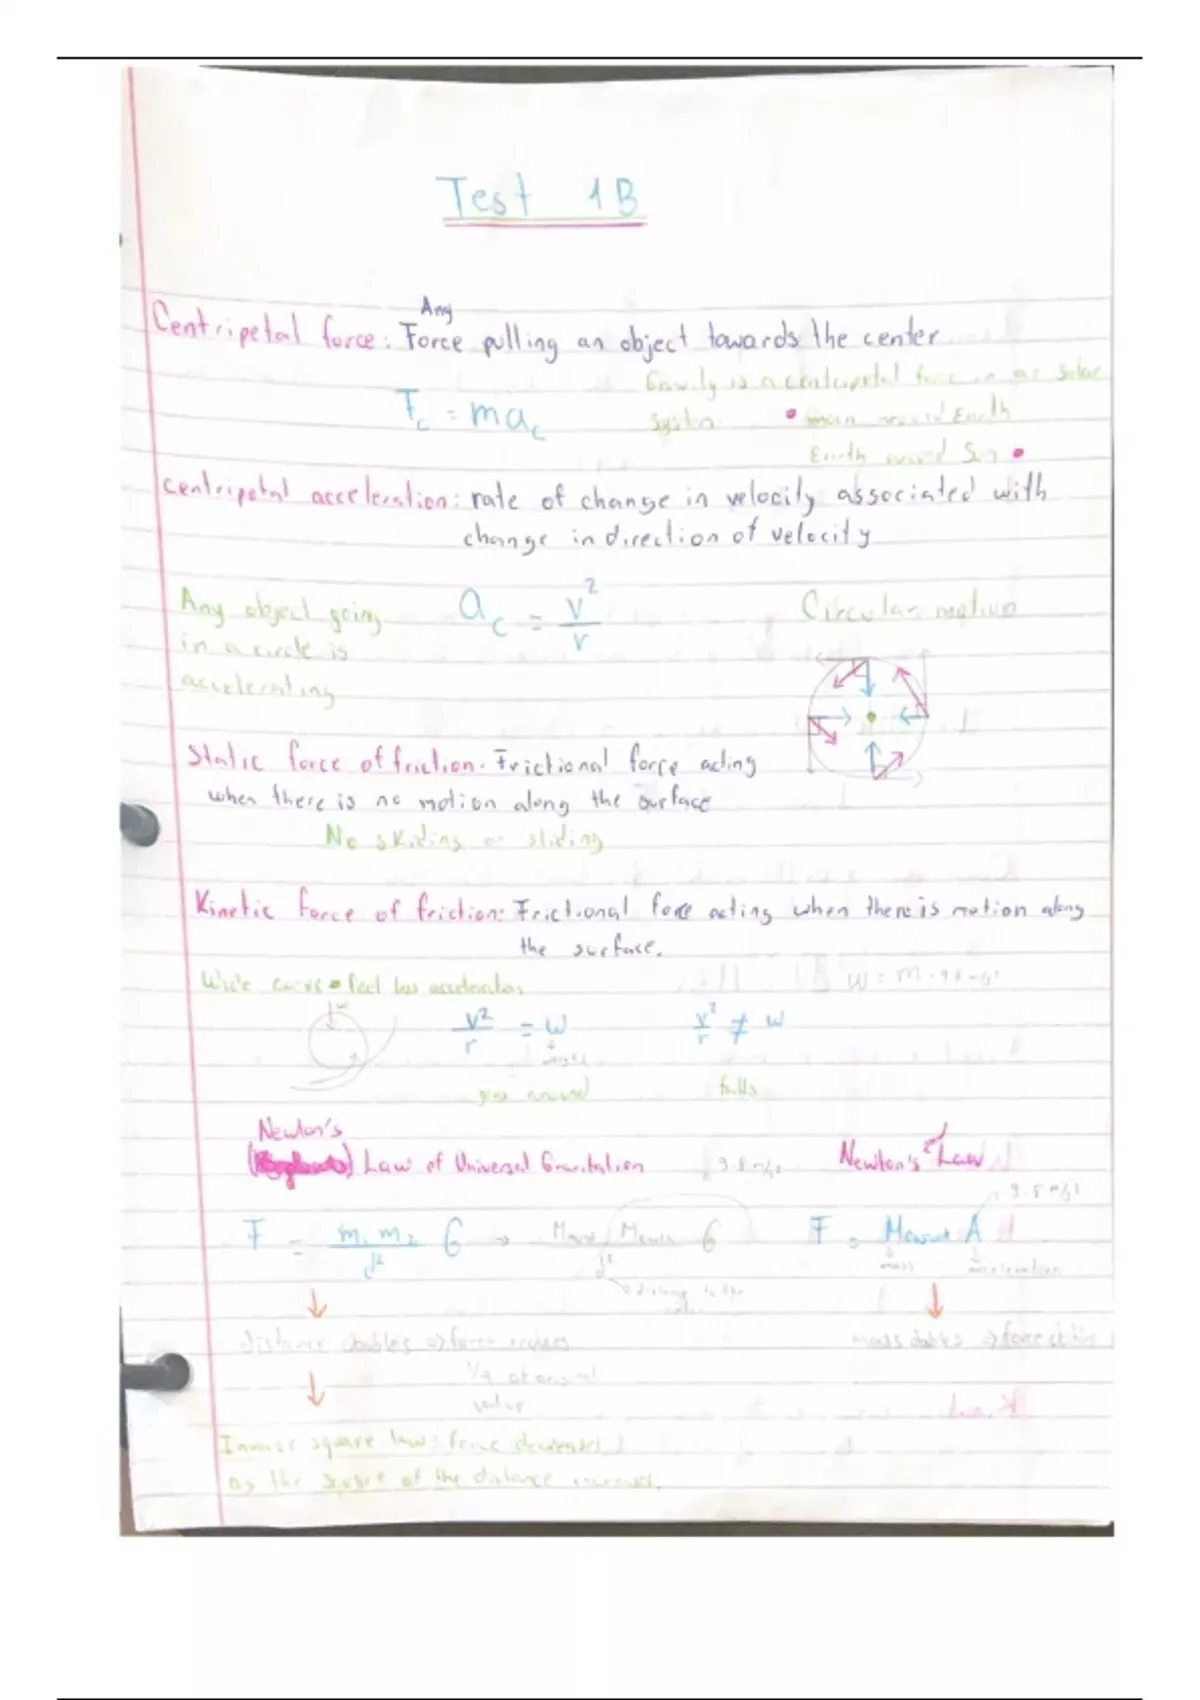 Test 1B
Any
Centripetal force: Force pulling an object towards the center
Gravity is a centripetal force in our solar
Fc = mac
system • moon around Earth
Earth around Sun •
Centripetal acceleration: rate of change in velocity associated with
change in direction of velocity
Any object going
in a circle is
accelerating
ac = v²/r
Circular motion
Static force of friction. Frictional force acting
when there is no motion along the surface
No skiding or sliding
Kinetic force of friction: Frictional force acting when there is motion along
the surface.
Wide curve • feel less acceleration
W = m · 9.8 m/s²
v²/r = W
weight
v²/r ≠ W
goes around
falls
Newton's
Law of Universal Gravitation
9.8 m/s²
Newton's 2nd Law
9.8 m/s²
F = m₁ m₂ / d² G →
G
d²
F =
A
mass
acceleration
distance doubles => force
1/4 of original
value
mass doubles => force
Inverse square law: force decreases
as the square of the distance increases.